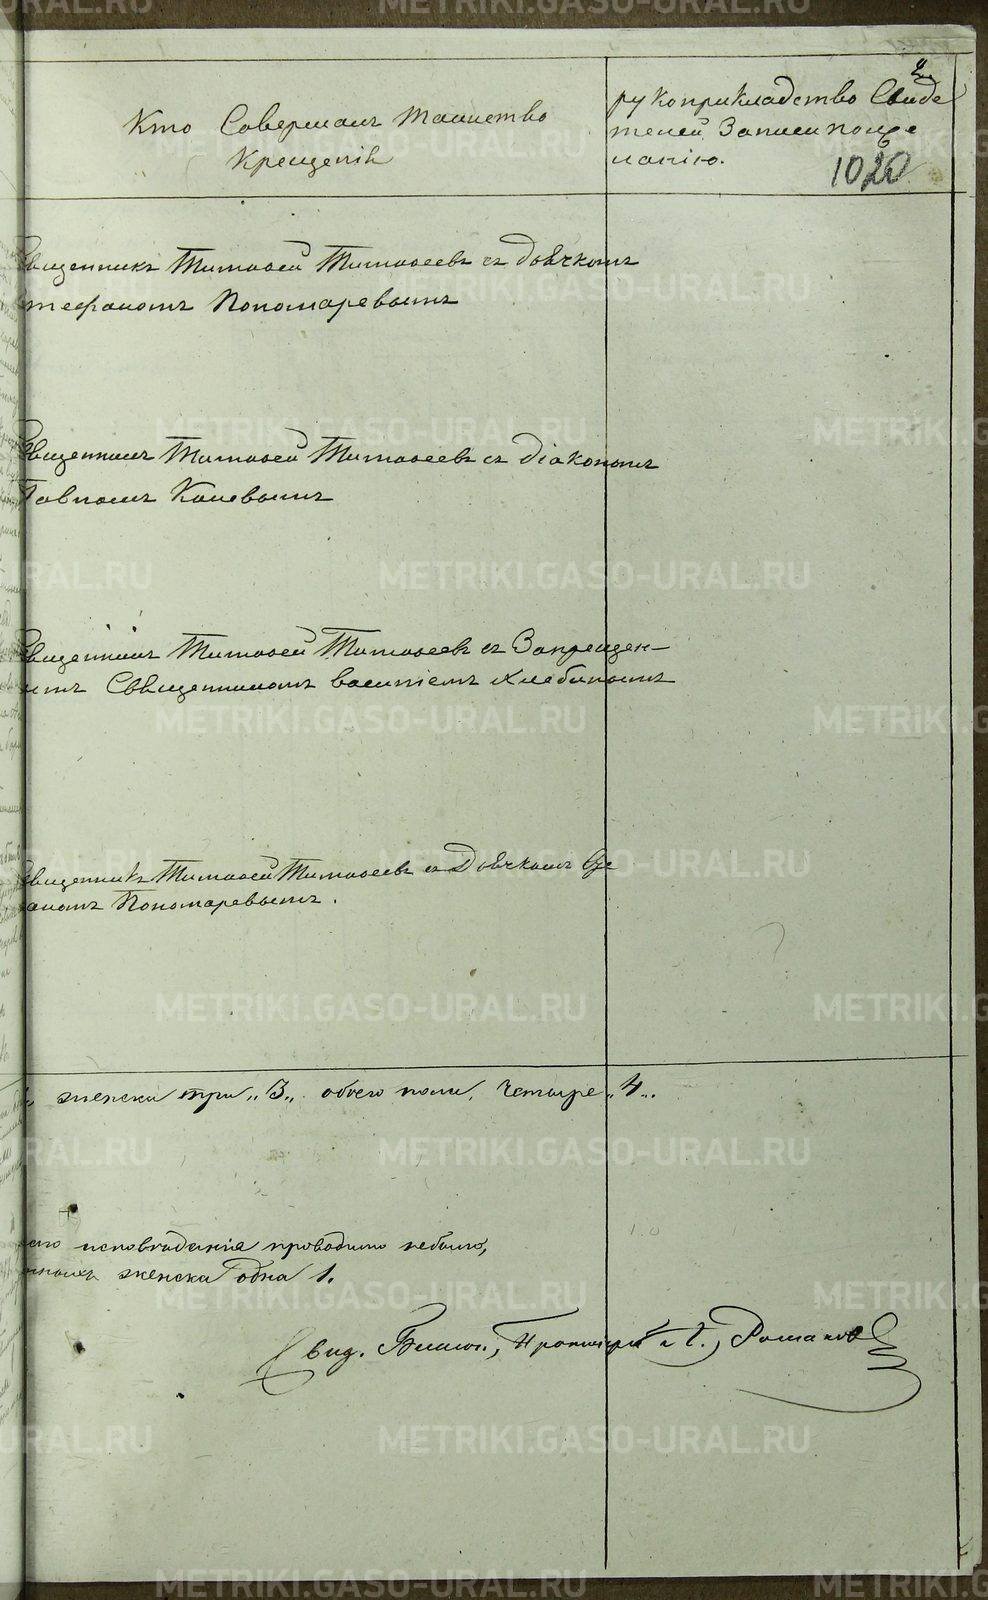 Кто Совершалъ Таинство
Крещенія
рукоприкладство Свиде
телей Записи поже
ланію.
1020
Священникъ Тимофей Тимофеевъ съ Дьячкомъ
Стефаномъ Пономаревымъ
Священникъ Тимофей Тимофеевъ съ Діакономъ
Павломъ
Священникъ Тимофей Тимофеевъ съ Запрещен-
нымъ Священникомъ Василіемъ Хлебинымъ
Священникъ Тимофей Тимофеевъ съ Дьячкомъ Сте
фаномъ Пономаревымъ.
женска три „3„ обоего пола, Четыре „4„.
исповѣданія проводимо небыло,
женска одна 1.
METRIKI.GASO-URAL.RU